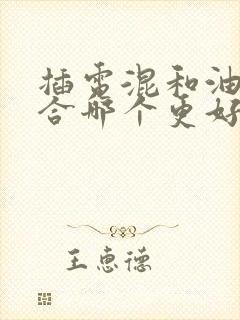 插电混和油
合哪个更好
王惠德